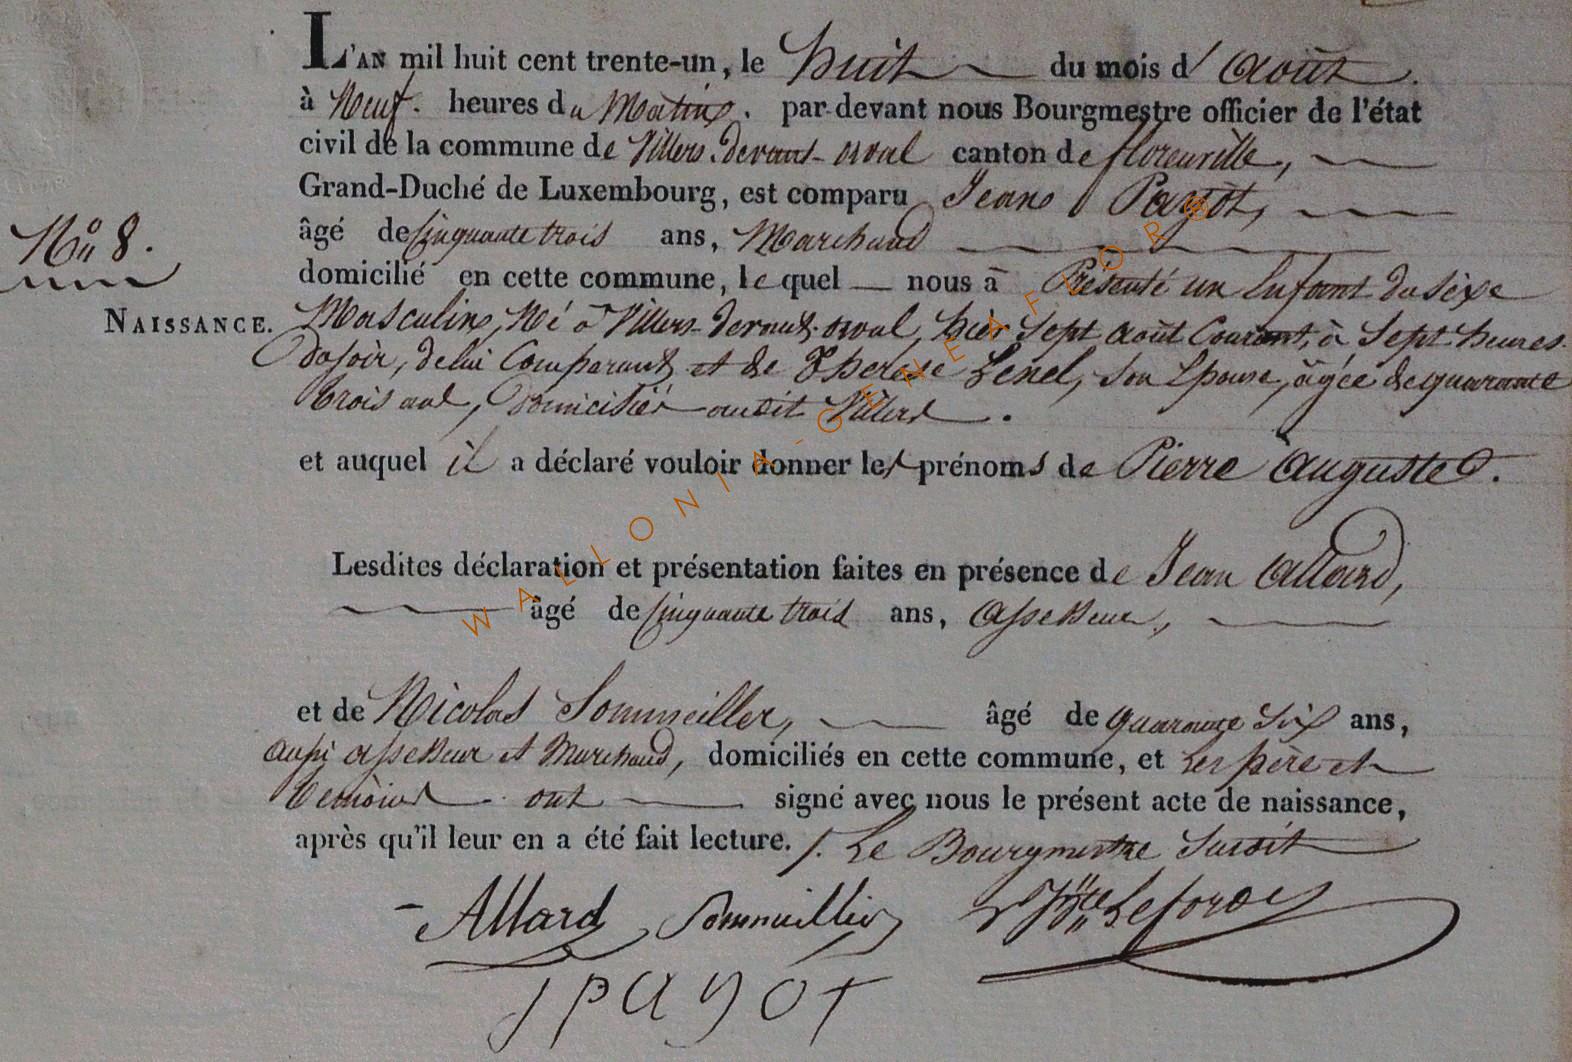 L'AN mil huit cent trente-un, le huit du mois d'août.
à Neuf. heures du Matin. par-devant nous Bourgmestre officier de l'état
civil de la commune de Villers-devant-orval canton de florenville,
Grand-Duché de Luxembourg, est comparu Jean Payot,
N° 8.
âgé de Cinquante trois ans, Marchand
domicilié en cette commune, lequel nous à Présenté un Enfant du Sèxe
NAISSANCE.
Masculin, Né à Villers-devant-orval, hier Sept août Courant, à Sept heures
du soir, de lui Comparant, et de Therese Lenel, son Epouse, âgée de quarante
trois ans, domiciliés audit Villers.
et auquel il a déclaré vouloir donner les prénoms de Pierre auguste.
Lesdites déclaration et présentation faites en présence de Jean Allard,
âgé de Cinquante trois ans, assesseur,
et de Nicolas Sommeiller, âgé de quarante Six ans,
aussi assesseur et Marchand, domiciliés en cette commune, et Les père et
témoins ont signé avec nous le présent acte de naissance,
après qu'il leur en a été fait lecture. Le Bourgmestre Susdit
Allard Sommeillier
JPAYOT
WALLONIA-GENEAFLOR®